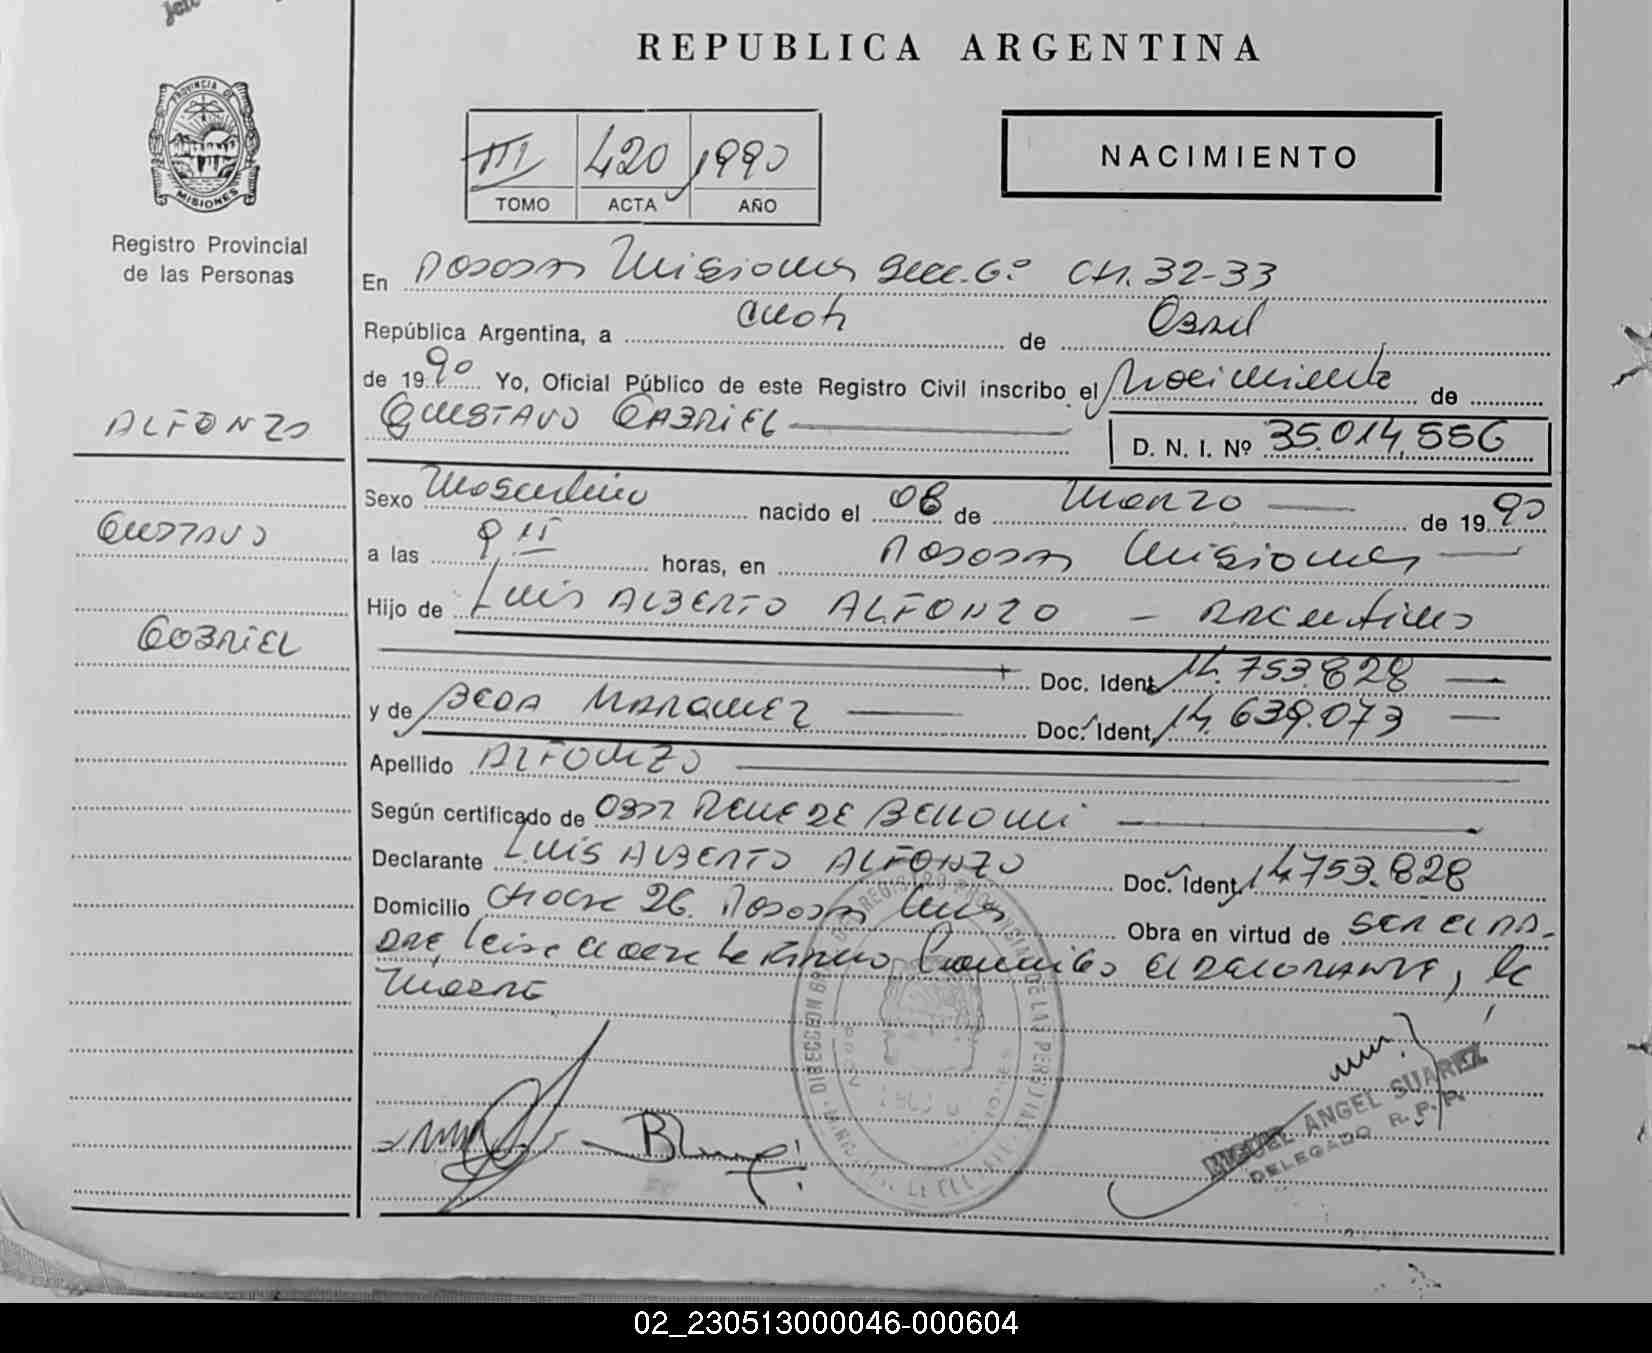 REPUBLICA ARGENTINA
PROVINCIA DE
MISIONES
Registro Provincial
de las Personas
III 420 1990
TOMO ACTA AÑO
NACIMIENTO
En Posadas Misiones Secc. 6º CH. 32-33
República Argentina, a once de Abril
de 1990 Yo, Oficial Público de este Registro Civil inscribo el Nacimiento de
ALFONZO
GUSTAVO GABRIEL
D. N. I. Nº 35.014.556
Sexo Masculino nacido el 08 de Marzo de 1990
GUSTAVO
a las horas, en Posadas Misiones
Hijo de LUIS ALBERTO ALFONZO - ARGentino
GABRIEL
Doc. Ident. 14.753.828
y de BEDA MARQUEZ Doc. Ident. 14.639.073
Apellido ALFONZO
Según certificado de OBST RENE DE
Declarante LUIS ALBERTO ALFONZO Doc. Ident. 14753.828
Domicilio CHACRA 26. Posadas Mnes Obra en virtud de SER EL PA-
DRE, leida el acta la firman Conmigo el DECLARANTE, la
MADRE
MIGUEL ANGEL SUAREZ
DELEGADO R. P. P.
02_230513000046-000604